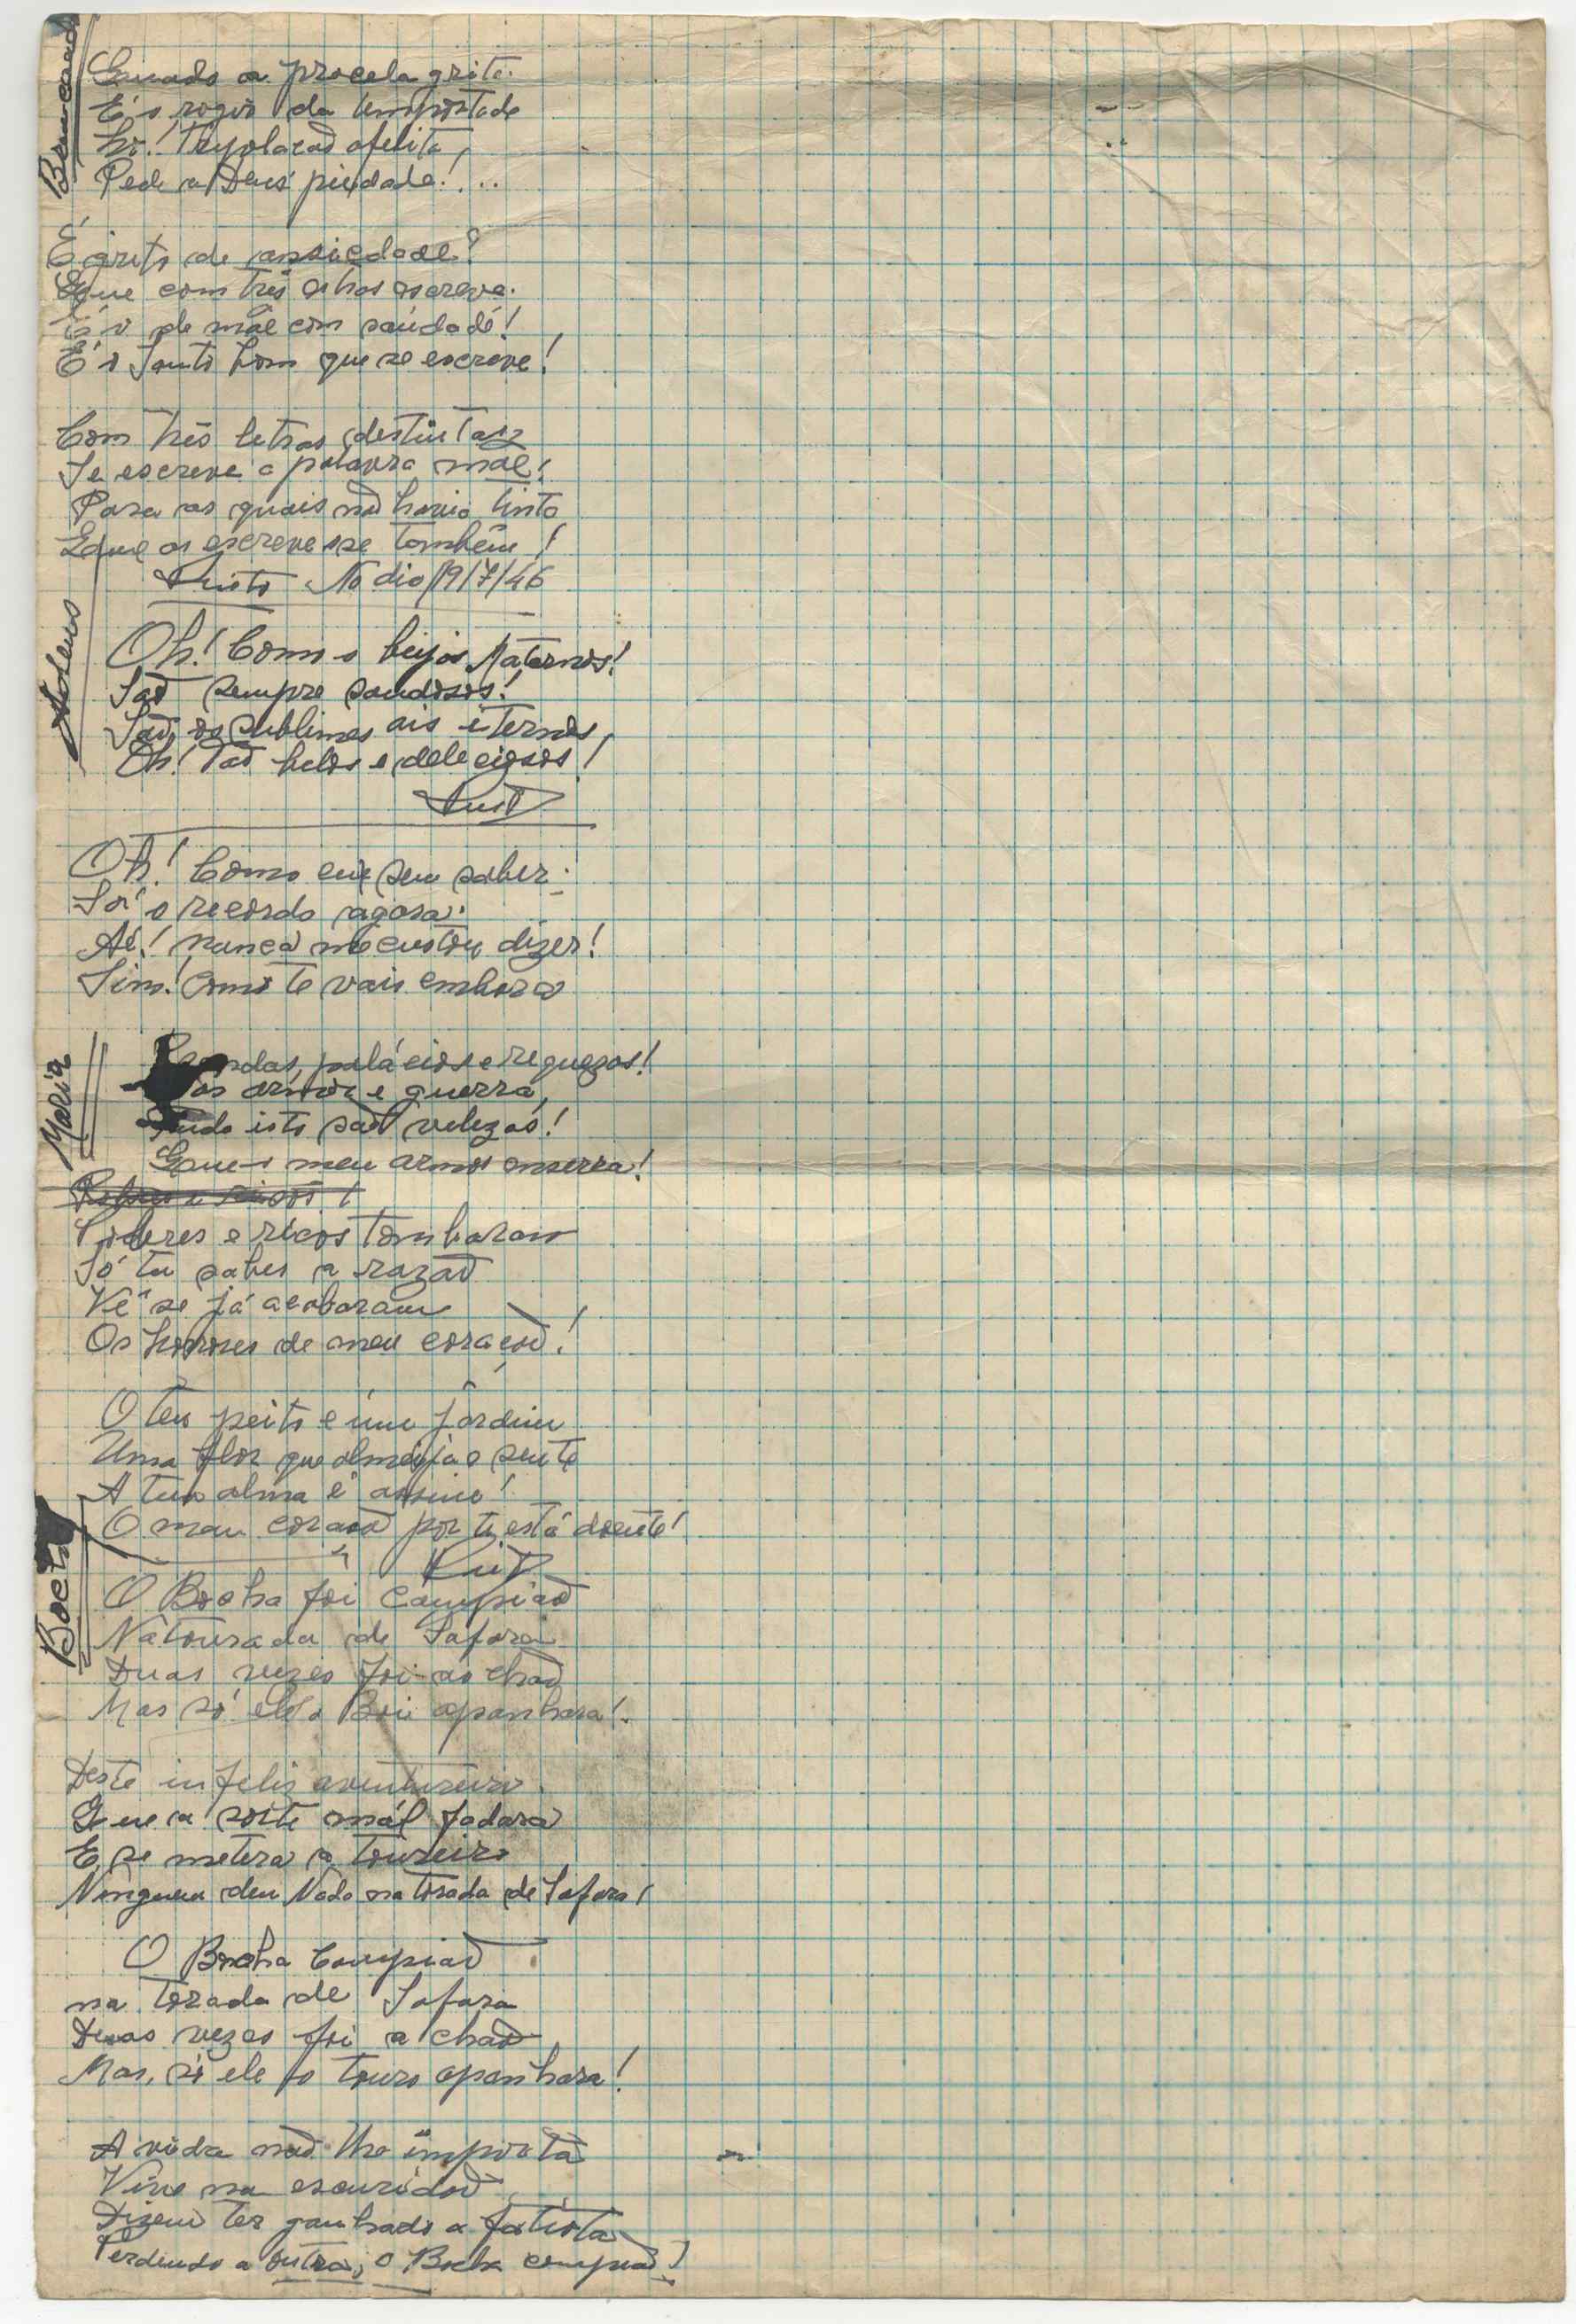 Quando a procela grita.
É o rogio da tempestade
Tripolacaõ afelita,
Pede a Deus piedade!...
É grito de ansiedade?
Que com três
É o de mãe com saúdade!
É o Santo bom que se escreve!
Com três letras destintas
Se escreve a palavra mãe!
Para as quais naõ havia tinta
Que as escrevesse também!
No dia 19/7/46
Oh! Como o beijos Maternos!
Saõ sempre saudosos!
Saõ os sublimes ais eternos,
Oh! Taõ belos e deleciosos!
Oh! Como eu sem saber.
Só o recordo agora.
Ai! nunca me custou dizer!
Sim! Como te vais embora
Maria
palácios e requezas!
guerra,
Tudo isto saõ velezas!
Que o meu armor enserra!
Poderes e ricos tombaram
Só tu sabes a razaõ
Vê se já acabaram
Os horrores de meu coraçaõ!
O teu peito e úm jardim
Uma flor que almeija e sente
A tua alma é assim!
O meu coraçaõ por ti está doente!
O Bocha foi Campiaõ
Na tourada de Safara
Duas vezes foi ao chaõ
Mas só ele o Boi apanhara!
Deste infeliz aventureiro
Que a sorte mál fadara
E se metera a toureiro
Ninguem deu Nada na torada de Safara!
O Bocha Campiaõ
na torada de Safara
Duas vezes foi a chaõ
Mas, só ele o touro apanhara!
A vida naõ lhe importa
Vive na escuridaõ
Dizem ter ganhado a fatiota
Perdendo a outra, o Bocha campiaõ!